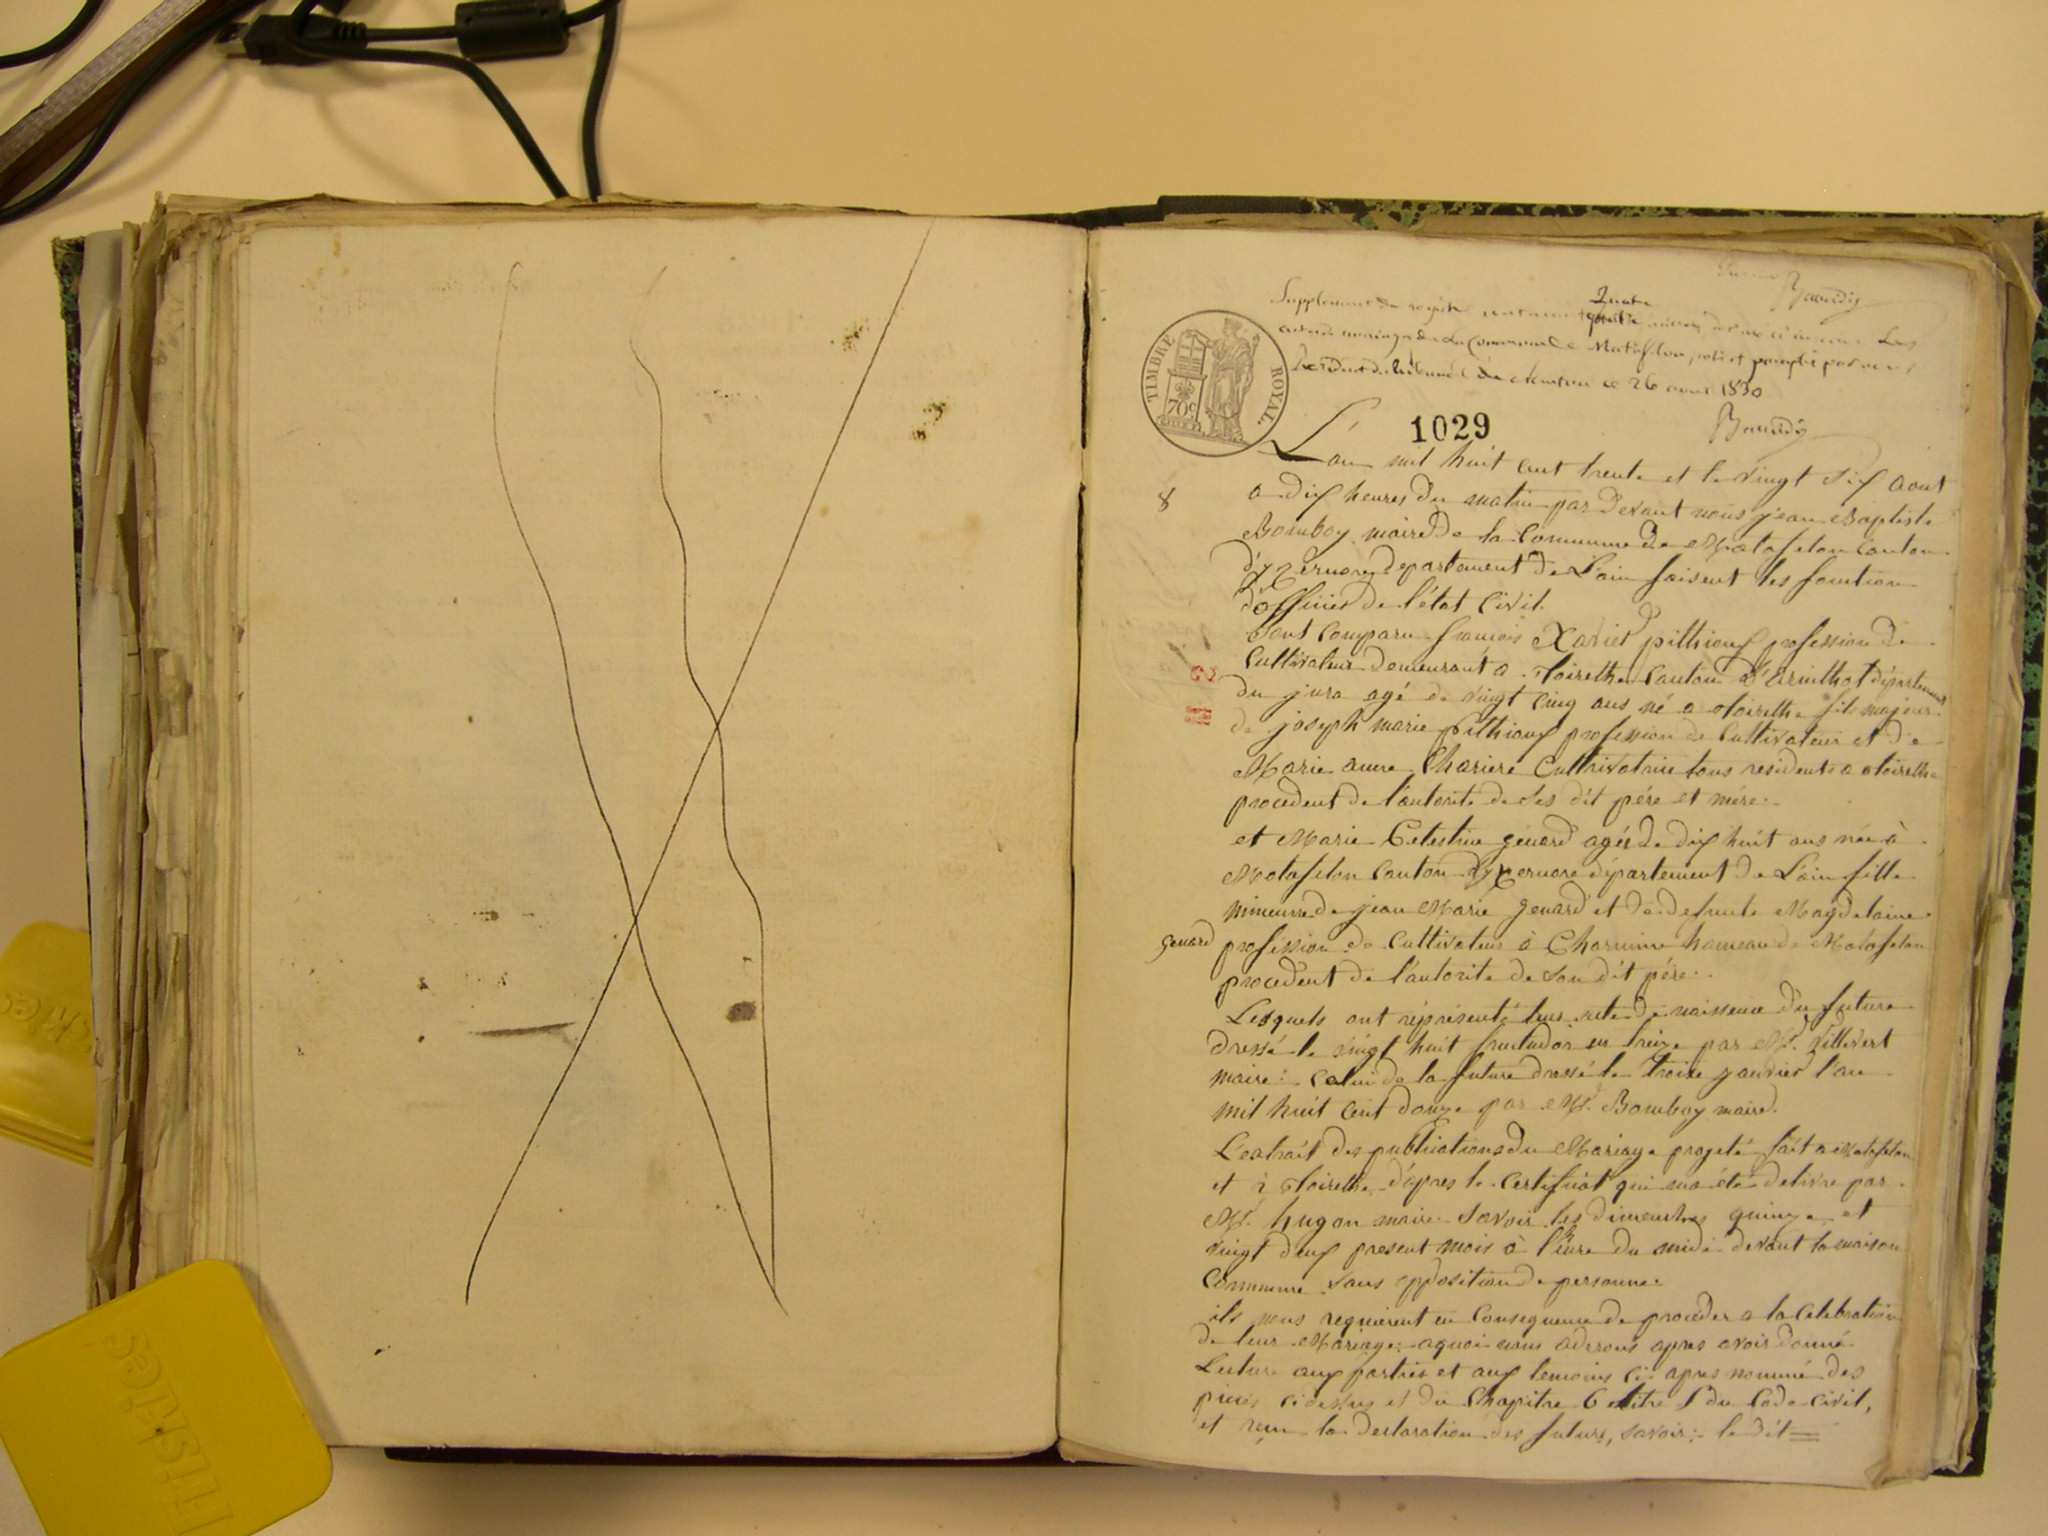 Supplement de registre contenant
Quatre
actes de mariage de la Commune de Matafelon, coté et paraphé par nous
President du tribunal de Nantua ce 26 aout 1830
Baudin
TIMBRE ROYAL.
70c
1029
L'an mil huit cent trente et le vingt six aout
8
a dix heures du matin par devant nous jean Baptiste
Bomboy maire de la Commune de Matafelon canton
d'yzernore departement de L'ain faisent les fonction
d'officier de l'état Civil.
Sont Comparu françois Xavier pitthioux profession de
Cultivateur demeurant a Thoirethe Canton d'Arinthot département
du jura agé de vingt cinq ans né a thoirethe fils majeur
de joseph marie pitthioux profession de Cultivateur et de
Marie anne Chariere Cultrivatrice tous residents a thoirethe
procedent de l'autorite de ses dit pére et mére.
et Marie Celestine genard agée de dix huit ans née à
Matafelon Canton d'yzernore département de L'ain fille
mineurre de jean Marie genard et de defunte Magdelaine
genard
profession de Cultivateur à Charmine hameau de Matafelon
procedent de l'autorite de son dit pére.
Lesquels ont réprésenté leur acte de naissence du future
dressé le vingt huit fructudor an treize par Mr. Villevert
maire: Celui de la future dressé le troize janvier l'an
mil huit cent douze par Mr. Bomboy maire.
L'extrait des publications du Mariage projeté fait a Matafelon
et à Thoirethe, d'apres le Certificat qui m'a été délivre par
Mr. hugon maire Savoir les dimenches quinze et
vingt deux present mois à l'heure du midi devant la maison
Commune sans opposition de personne.
ils nous requierent en Consequence de proceder a la Celebration
de leur Mariage: aquoi nous aderons apres avoir donné
Lecture aux parties et aux temoins ci apres nommé des
pieces ci dessus et du Chapitre 6 titre 5 du Code Civil,
et reçu la declaration des futurs, savoir: le dit